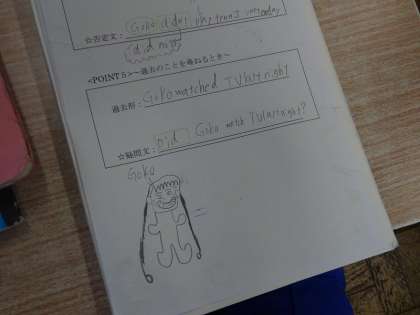 ☆否定文: Goko didn't play tennis yesterday
did not
<POINT5>~過去のことを尋ねるとき~
過去形: Goko watched TV last night
☆疑問文: Did Goko watch TV last night?
Goko